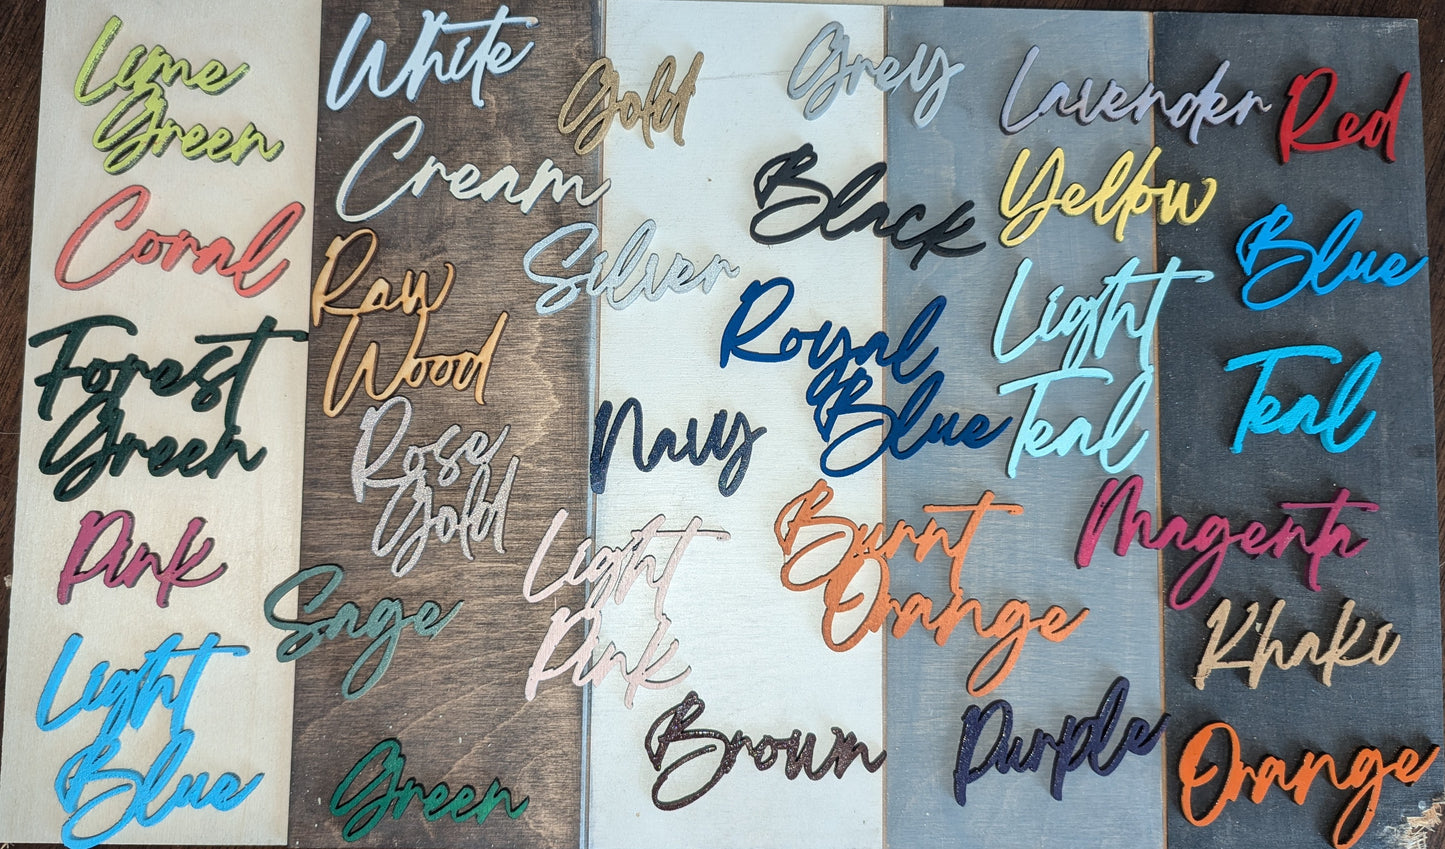 Lime
Green
Coral
Forest
Green
Pink
Light
Blue
White
Cream
Raw
Wood
Rose
Gold
Sage
Green
Gold
Silver
Navy
Light
Pink
Brown
Grey
Black
Royal
Blue
Burnt
Orange
Purple
Lavender
Yellow
Light
Teal
Magenta
Red
Blue
Teal
Khaki
Orange